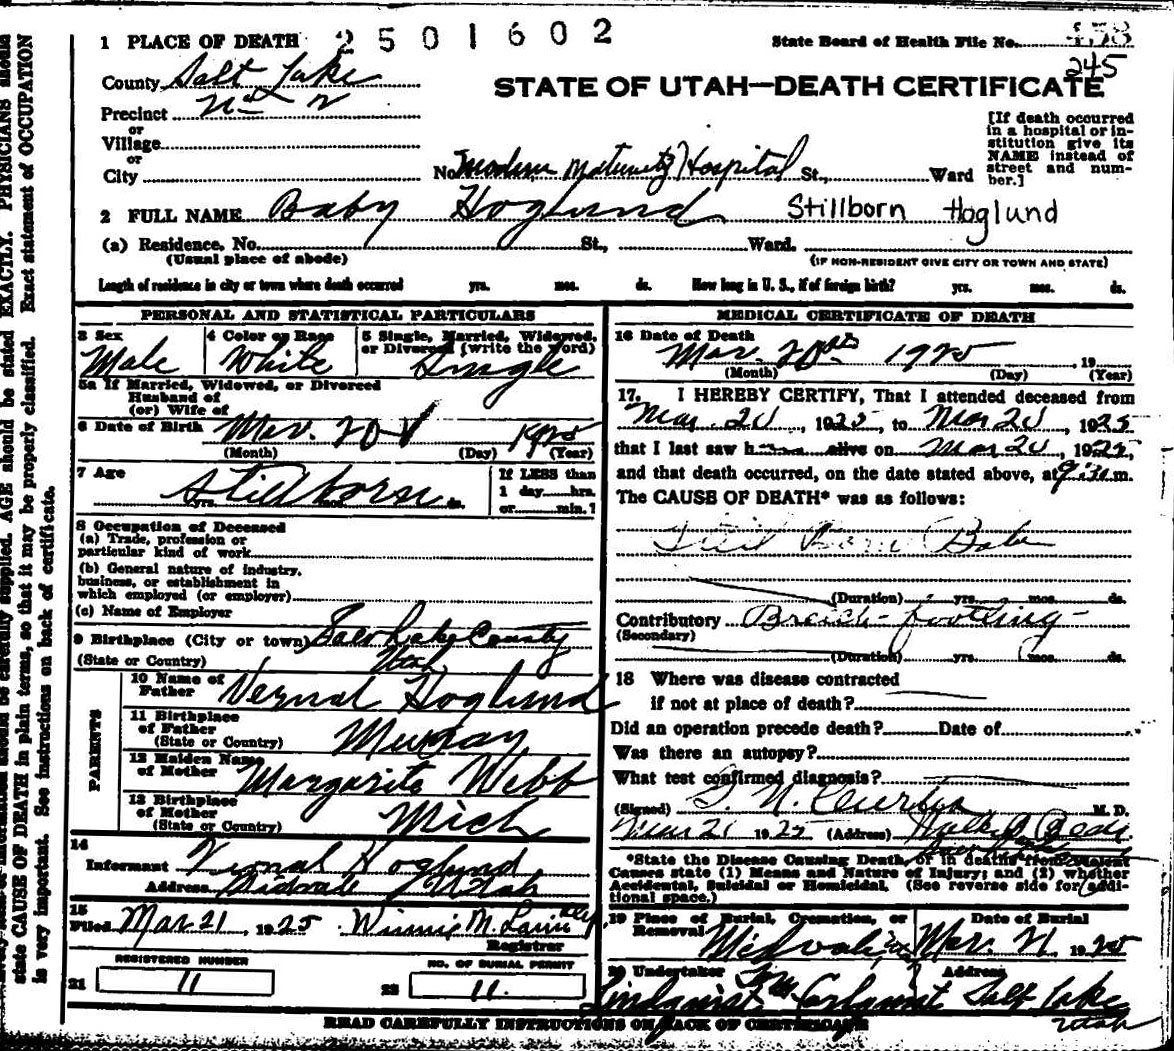 1 PLACE OF DEATH 2501602
State Board of Health File No. 458
245
County Salt Lake
STATE OF UTAH—DEATH CERTIFICATE
Precinct No 2
or
Village
or
City
No. Modern Maternity Hospital St., Ward
[If death occurred
in a hospital or in-
stitution give its
NAME instead of
street and num-
ber.]
2 FULL NAME Baby Hoglund Stillborn Hoglund
(a) Residence. No. St., Ward.
(Usual place of abode) (IF NON-RESIDENT GIVE CITY OR TOWN AND STATE)
Length of residence in city or town where death occurred yrs. mos. ds. How long in U. S., if of foreign birth? yrs. mos. ds.
PERSONAL AND STATISTICAL PARTICULARS
3 Sex 4 Color or Race 5 Single, Married, Widowed,
or Divorced (write the word)
Male White Single
5a If Married, Widowed, or Divorced
Husband of
(or) Wife of
6 Date of Birth Mar. 20 1925
(Month) (Day) (Year)
7 Age Still born
yrs. mos. ds.
If LESS than
1 day hrs.
or min.?
8 Occupation of Deceased
(a) Trade, profession or
particular kind of work
(b) General nature of industry,
business, or establishment in
which employed (or employer)
(c) Name of Employer
9 Birthplace (City or town) Salt Lake County
(State or Country) Utah
PARENTS
10 Name of
Father Vernal Hoglund
11 Birthplace
of Father
(State or Country) Murray
12 Maiden Name
of Mother Margarite Webb
13 Birthplace
of Mother
(State or Country) Mich
14
Informant Vernal Hoglund
Address Midvale Utah
15
Filed Mar 21, 1925 Winnie M.
Registrar
REGISTERED NUMBER
21 11
NO. OF BURIAL PERMIT
22 11
MEDICAL CERTIFICATE OF DEATH
16 Date of Death
Mar. 20 1925, 19
(Month) (Day) (Year)
17. I HEREBY CERTIFY, That I attended deceased from
Mar. 20, 1925, to Mar 20, 1925
that I last saw h alive on Mar 20, 1925,
and that death occurred, on the date stated above, at 9:30 m.
The CAUSE OF DEATH* was as follows:
Still Born Babe
(Duration) yrs. mos. ds.
Contributory Breach - footling
(Secondary)
(Duration) yrs. mos. ds.
18 Where was disease contracted
if not at place of death?
Did an operation precede death? Date of
Was there an autopsy?
What test confirmed diagnosis?
(Signed) M. D.
Mar 21 1925 (Address) Walker
*State the Disease Causing Death, or in deaths from Violent
Causes state (1) Means and Nature of Injury; and (2) whether
Accidental, Suicidal or Homicidal. (See reverse side for addi-
tional space.)
19 Place of Burial, Cremation, or
Removal Date of Burial
Midvale Mar. 21 1925
20 Undertaker Address
Lindquist Carlquist Salt Lake
Utah
READ CAREFULLY INSTRUCTIONS ON BACK OF CERTIFICATE
supplied. AGE should be stated EXACTLY. PHYSICIANS should
state CAUSE OF DEATH in plain terms, so that it may be properly classified. Exact statement of OCCUPATION
is very important. See instructions on back of certificate.